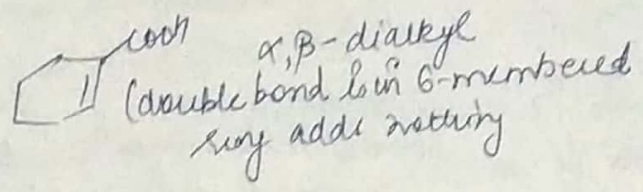 COOH
α,β-dialkyl
(double bond is in 6-membered
ring adds nothing